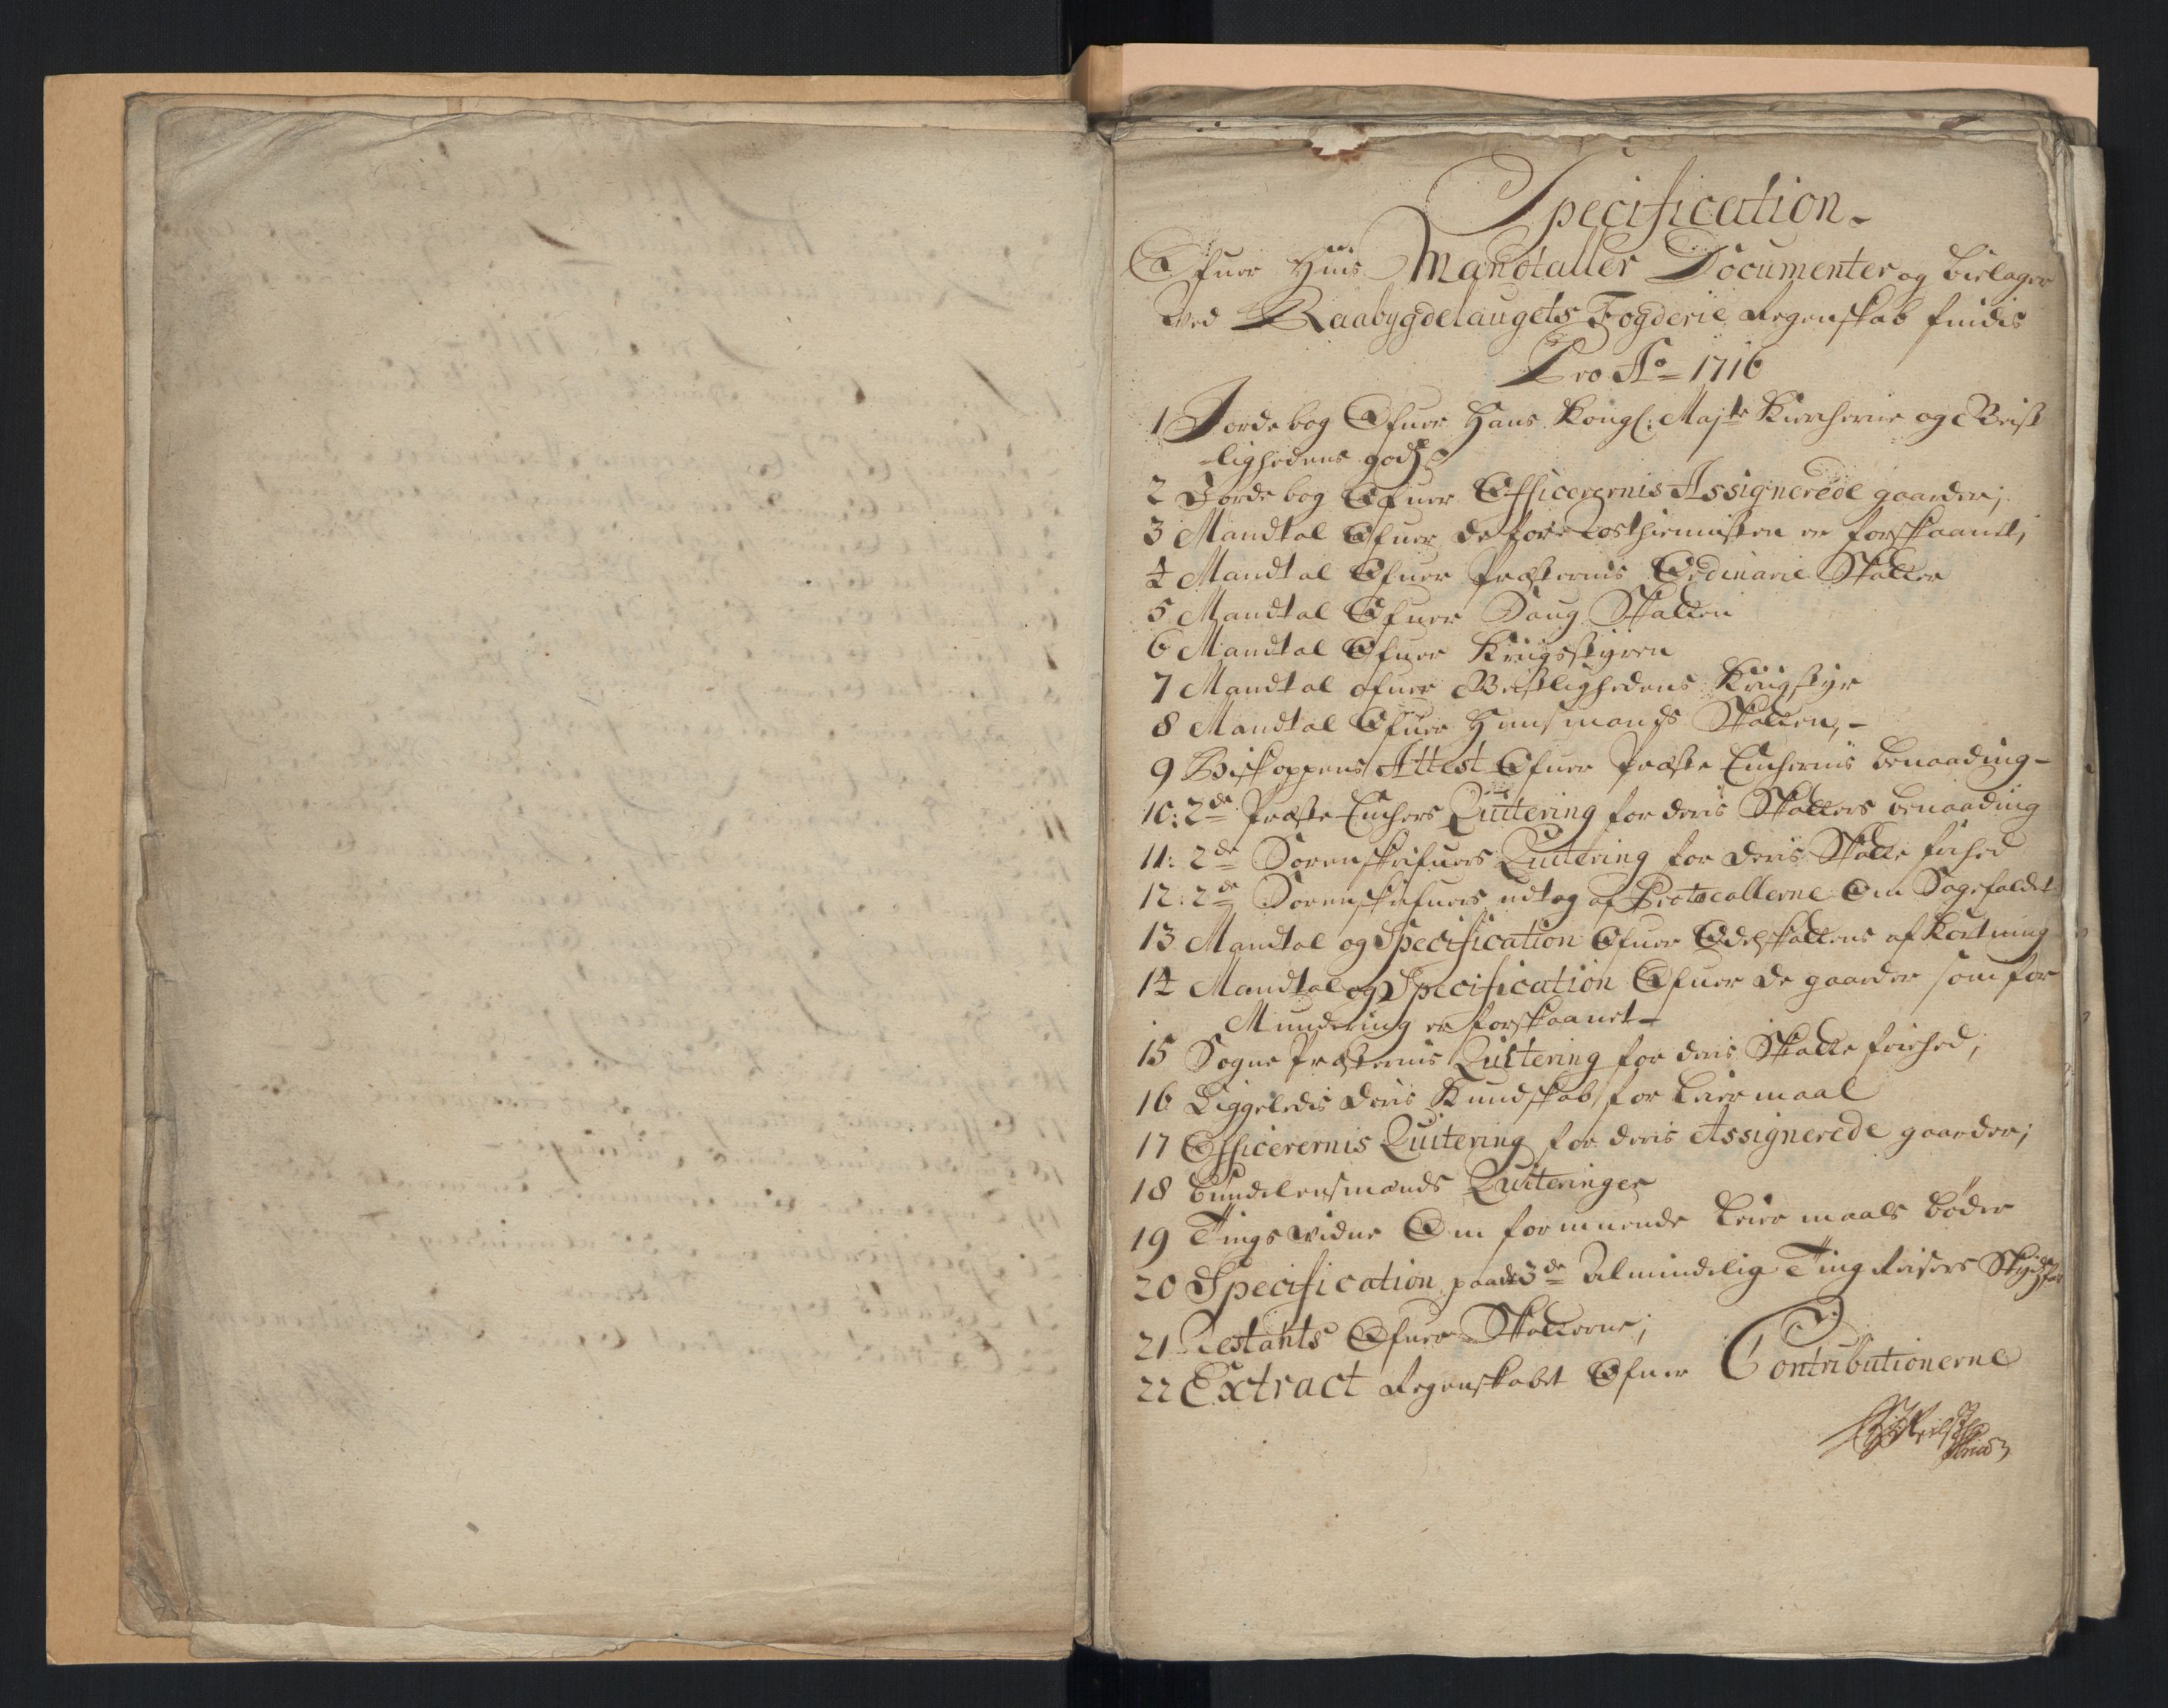 Specification
Ofuer Huis Mandtaller Documenter og bielager
Ved Raabygdelaugets Fogderie Regenskab findis
Pro Ao 1716
1 Jordebog Ofuer Hans Kongl: Majts Kircherne og Geist
-lighedens godtz
2 Jordebog Ofuer Officerernis Assignerede gaarder;
3 Mandtal Ofuer de for Rosthienisten er forskaanet,
4 Mandtal Ofuer Præsternis Ordinarie Skatter
5 Mandtal Ofuer Saug Skatten
6 Mandtal Ofuer Krigsstyren
7 Mandtal ofuer Geistlighedens Krigstyr
8 Mandtal Ofuer Huusmands Skatten,-
9 Biskoppens Attest Ofuer Præste Enchernis benaading-
10: 2de Præste Enchers Quitering for deris Skatters benaading
11: 2de Sorenskrifuers Quitering for deris Skatte frihed
12: 2de Sorenskrifuers udtog af Protocollerne Om Sagefaldet
13 Mandtal og Specification Ofuer Odelskattens afkortning
14 Mandtal og Specification Ofuer de gaarder som for
Mundering er forskaanet-
15 Sogne Præsternis Quitering for deris Skatte frihed;
16 Liggeledis deris Kundskab for Leiermaal
17 Officerernis Quitering for deris Assignerede gaarder;
18 Bundelensmænds Quiteringer
19 Tingsvidne Om formuende Leiermaals bøder
20 Specification paa de 3de Almindelig Ting Reisers Skyds
21 Restants Ofuer Skatterne;
22 Extract Regenskabet Ofuer Contributionerne